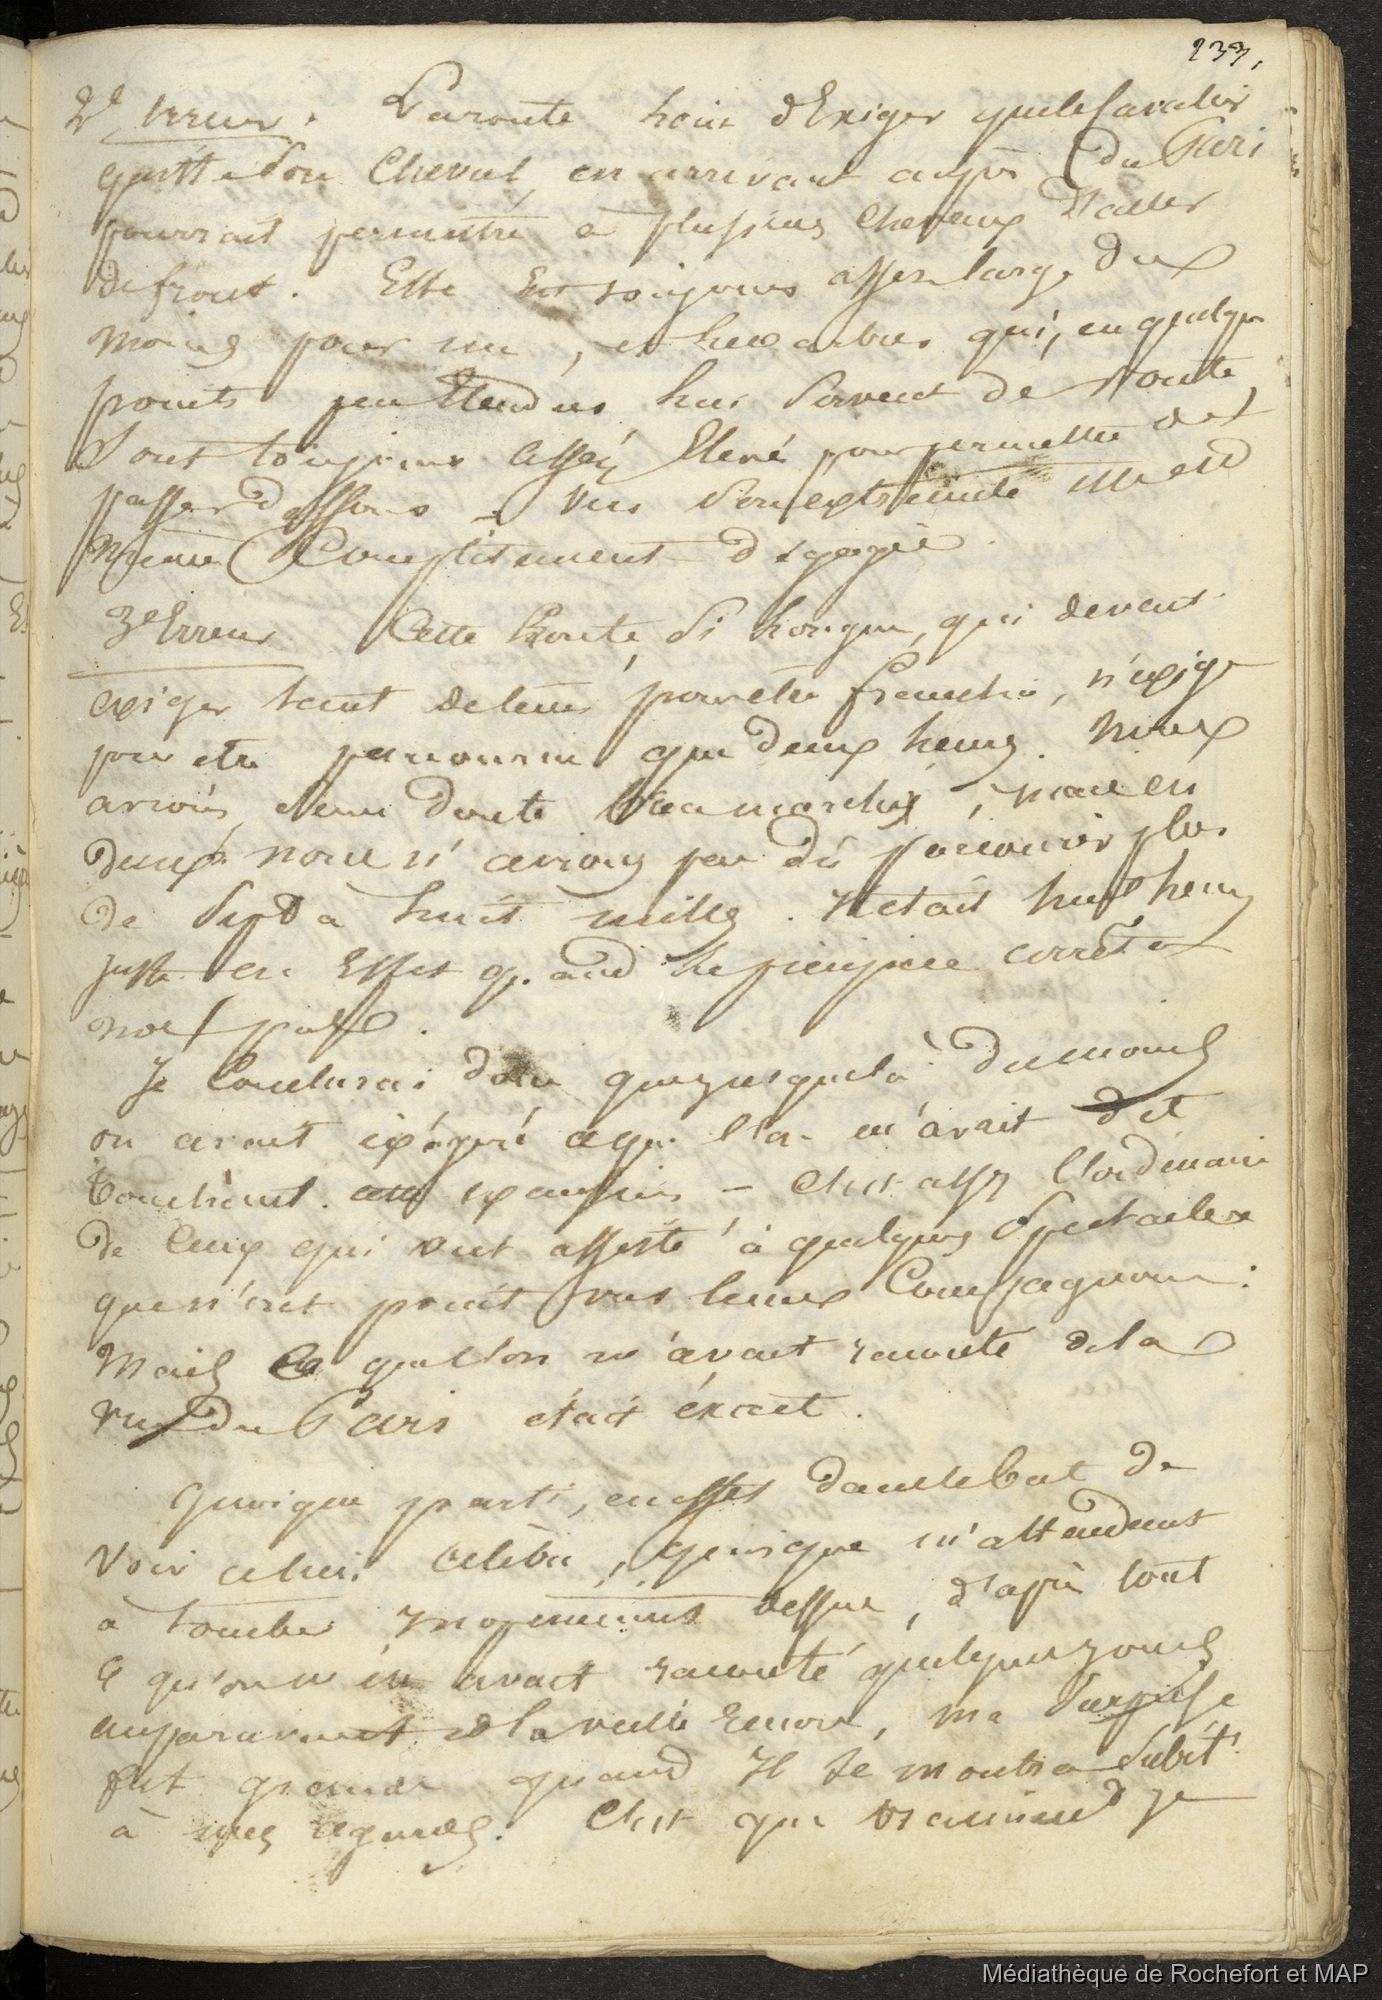 233.
2e erreur. La route loin d'Exiger que le Cavalier
quitte son Cheval en arrivant auprès du Pari
pourrait permettre à plusieurs Chevaux d'aller
de front. Elle est toujours assez large du
moins pour un, et les arbres qui, en quelques
points peu Etendus lui servent de voute
sont toujours assez Elevé pour permettre de
passer dessous - vers son extremité elle est
même Complètement dégagée.
3e Erreur. Cette Route, si longue, qui devait
exiger tant de tems pour être franchie, n'exige
pour etre parcourue que deux heures. Nous
avions sans doute bien marché, mais en
deux nous n'avions pas dû parcourir plus
de sept à huit milles. Il était huit heures
juste en Effet quand le arrêta
nos pas.
Je Conclurai donc que jusques là du moins
on avait exagéré ce que l'on m'avait dit
touchant cette - C'est assez l'ordinaire
de Ceux qui ont assisté à quelques Spectacles
que n'ont point vus leurs Compagnons:
Mais Ce que l'on m'avait raconté de la
vue du Pari était exact.
Quoique parti, en effet dans le but de
voir ce lieu célèbre, quoique m'attendant
à tomber inopinément dessus, d'après tout
ce qu'on m'en avait raconté quelques jours
auparavant et la veille Encore, ma surprise
fut grande quand Il se montra subit.
à mes regards. C'est que vraiment je
Médiathèque de Rochefort et MAP